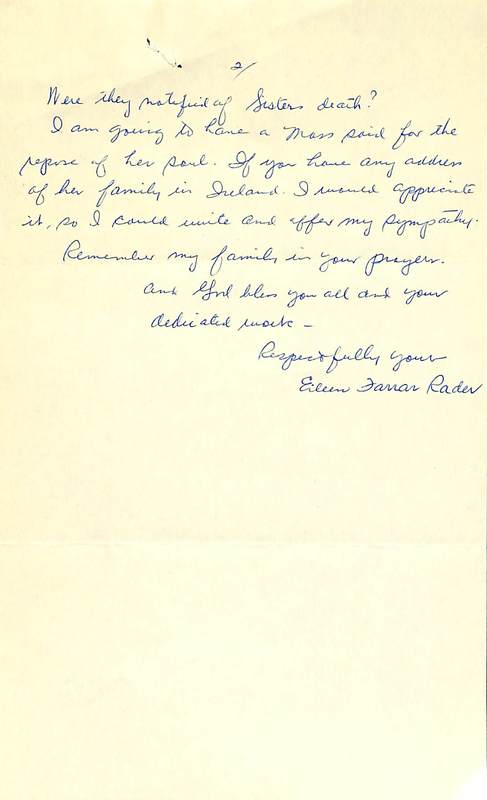 2/
Were they notified of Sisters death?
I am going to have a Mass said for the
repose of her soul. If you have any address
of her family in Ireland. I would appreciate
it, so I could write and offer my sympathy.
Remember my family in your prayers.
And God bless you all and your
dedicated work –
Respectfully yours
Eileen Farrar Rader